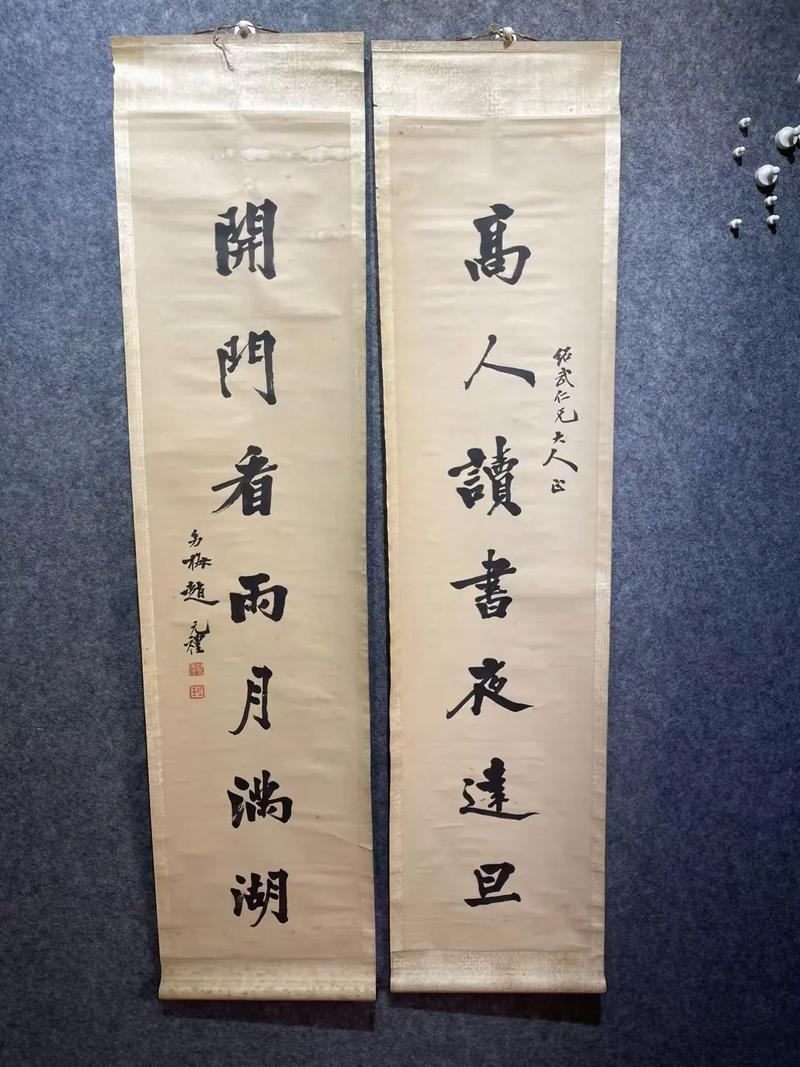 高人讀書夜達旦
紹武仁兄大人正
開門看雨月滿湖
幼梅趙元禮